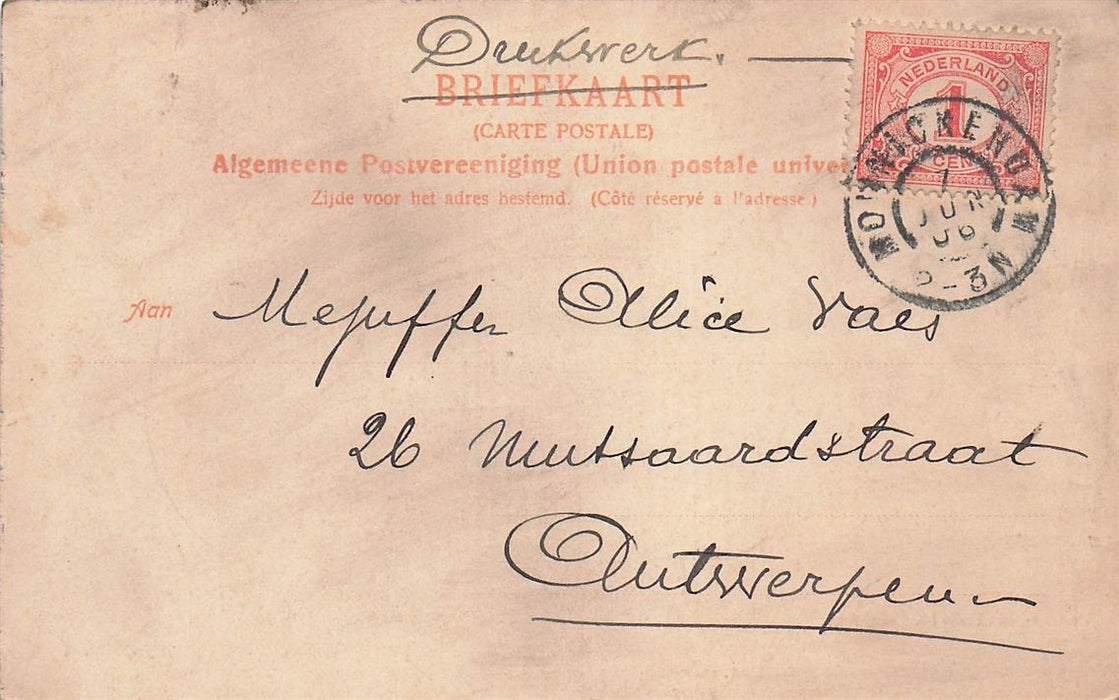 Drukwerk.
BRIEFKAART
(CARTE POSTALE)
Algemeene Postvereeniging (Union postale univer
Zijde voor het adres bestemd. (Côté réservé à l'adresse.)
NEDERLAND
1
CENT
MONNICKENDAM
1
JUN
06
2-3N
Aan Mejuffer Alice Vaes
26 Mutsaardstraat
Antwerpen